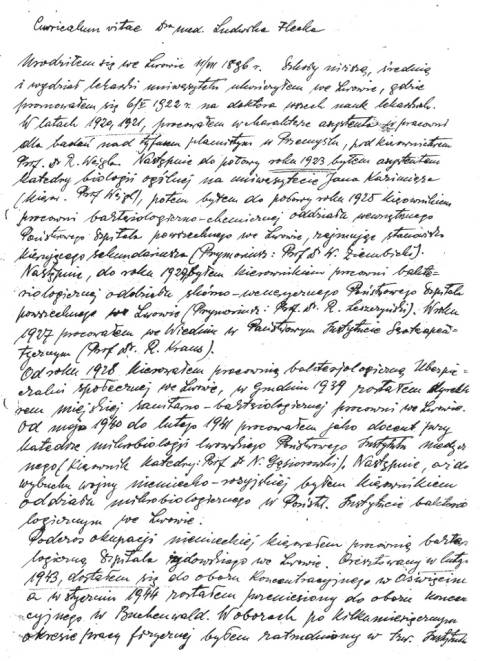 Curriculum vitae Dra med. Ludwika Flecka
Urodziłem się we Lwowie 11/VII 1896 r. Szkoły niższą, średnią
i wydział lekarski uniwersytetu ukończyłem we Lwowie, gdzie
promowałem się 6/X 1922 r. na doktora wszech nauk lekarskich.
W latach 1920, 1921, pracowałem w charakterze asystenta w pracowni
dla badań nad tyfusem plamistym w Przemyślu, pod kierownictwem
Prof. Dr R. Weigla. Następnie do połowy roku 1923 byłem asystentem
Katedry biologii ogólnej na uniwersytecie Jana Kazimierza
(kier. Prof Weigl), potem byłem do połowy roku 1925 kierownikiem
pracowni bakteriologiczno-chemicznej oddziału wewnętrznego
Państwowego Szpitala powszechnego we Lwowie, zajmując stanowisko
kierującego sekundariusza (Prymariusz: Prof Dr W. Ziembicki).
Następnie, do roku 1927 byłem kierownikiem pracowni bakte-
riologicznej oddziału skórno-wenerycznego Państwowego Szpitala
powszechnego we Lwowie (Prymariusz: Prof. Dr. R. Leszczyński). W roku
1927 pracowałem we Wiedniu w Państwowym Instytucie Seroterapeu-
tycznym (Prof Dr. R. Kraus).
Od roku 1928 kierowałem pracownią bakteriologiczną Ubezpie-
czalni społecznej we Lwowie, w grudniu 1939 zostałem dyrekto-
rem miejskiej sanitarno-bakteriologicznej pracowni we Lwowie.
Od maja 1940 do lutego 1941 pracowałem jako docent przy
katedrze mikrobiologii lwowskiego Państwowego Instytutu medycz-
nego (kierownik Katedry: Prof Dr N. Gąsiorowski). Następnie, aż do
wybuchu wojny niemiecko-rosyjskiej byłem kierownikiem
oddziału mikrobiologicznego w Państw. Instytucie bakterio-
logicznym we Lwowie.
Podczas okupacji niemieckiej kierowałem pracownią bakte-
logiczną Szpitala żydowskiego we Lwowie. Aresztowany w lutym
1943, dostałem się do obozu koncentracyjnego w Oświęcimiu
a w styczniu 1944 zostałem przeniesiony do obozu koncen-
cyjnego w Buchenwald. W obozach po kilkumiesięcznym
okresie pracy fizycznej byłem zatrudniony w tzw. Instytucie